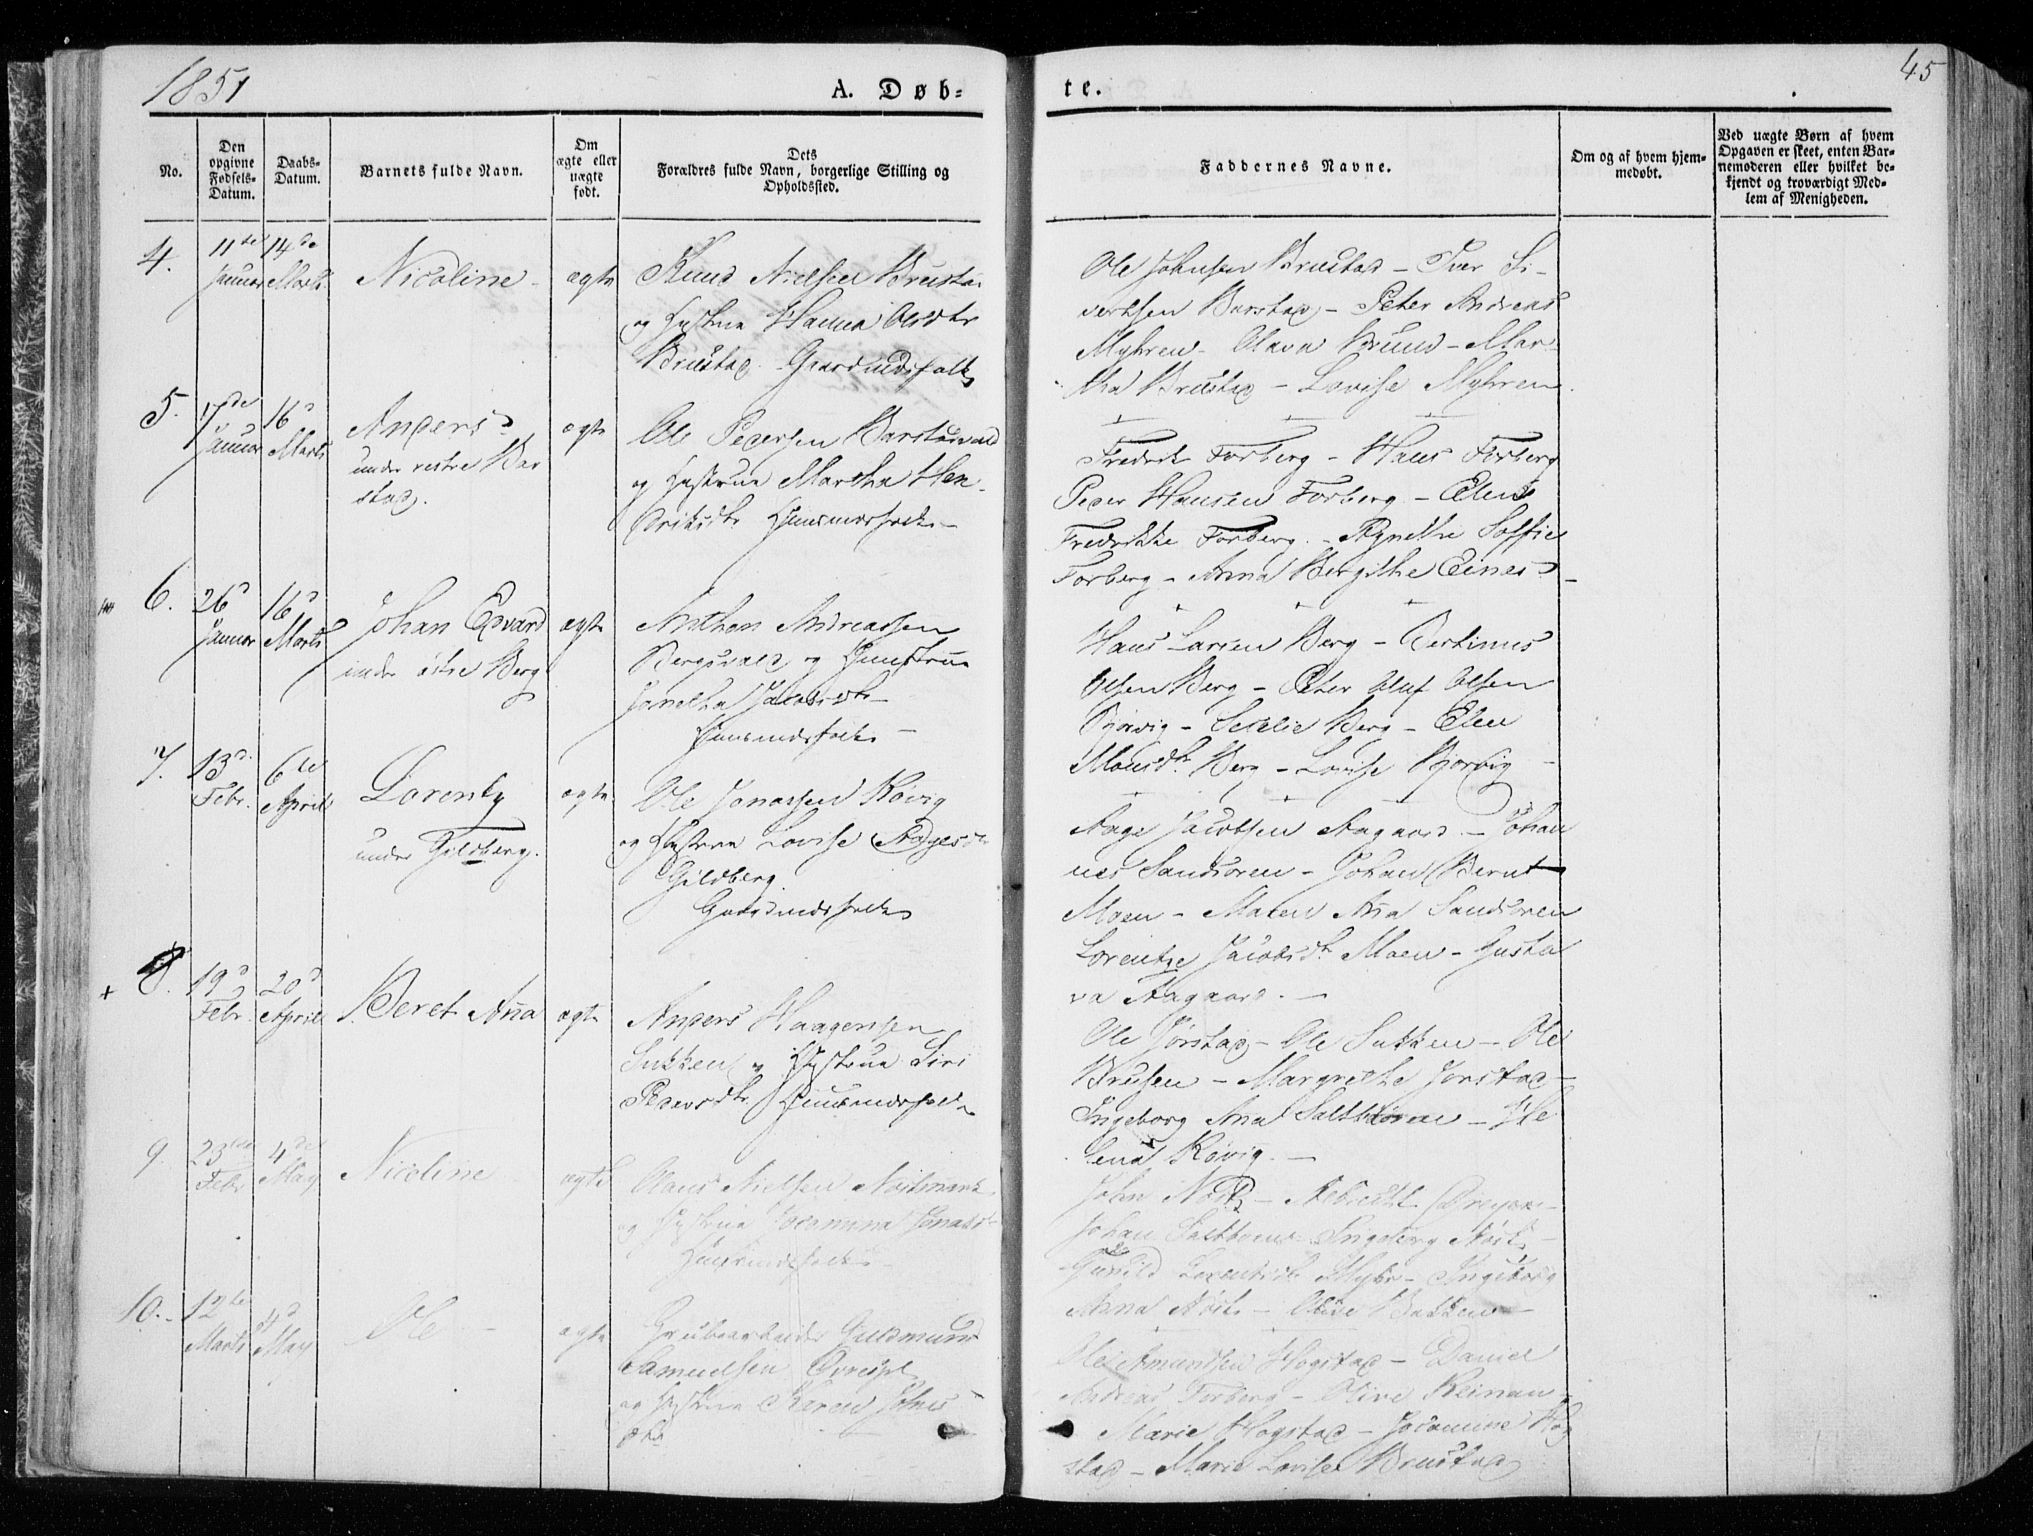 1851
A. Døb-
te.
45
No.
Den opgivne Fødsels-Datum.
Daabs-Datum.
Barnets fulde Navn.
Om ægte eller uægte født.
Dets Forældres fulde Navn, borgerlige Stilling og Opholdssted.
Faddernes Navne.
Om og af hvem hjem-medøbt.
Ved uægte Børn af hvem Opgaven er skeet, enten Bar-nemoderen eller hvilket be-kjendt og troværdigt Med-lem af Menigheden.
4.
11te Januar
14de Marts
Nicoline
ægte
Knud Nielsen Brustad
og Hustrue Hanna Olsdtr
Brustad. Gaardmdsfolk
Ole Johnsen Brustad - Iver Si-
vertsen Barstad - Peter Andreas
Myhren - Olava Brund - Mar-
tha Brustad - Lovise Myhren.
5.
17de Januar
16d Marts
Anders
under vestre Bar
stad.
ægte
Ole Pedersen Barstadvald
og Hustrue Martha Hen-
driksdtr Huusmdsfolk
Fredrik Forberg - Hans Forberg
Peder Hansen Forberg - Elen
Fredrikke Forberg. - Agnethe Soffie
Forberg - Anna Bergithe Eines
6.
26d Januar
16d Marts
Johan Edvard
under østre Berg
ægte
Anthon Andreassen
Bergsvald og Hustrue
Janetha Jacobsdtr
Huusmdsfolk
Hans Larsen Berg - Bertinus
Olsen Berg - Peter Oluf Olsen
Bjørvig - Cecelie Berg - Elen
Monsdtr Berg - Lovise Bjørvig
7.
13d Febr.
6te April
Lorents
under Gildberg.
ægte
Ole Jonassen Røvig
og Hustrue Lovise Aagesdtr
Gildberg.
Gaardmdsfolk
Aage Jacobsen Aagaard. - Johan
nes Sandsoren - Johan Bernt
Moen - Maren Ana Sandsoren
Lorentze Jacobsdtr Moen - Gusta
va Aagaard.
8.
19d Febr
20d April
Beret Ana
ægte
Anders Haagensen
Sukken og Hustrue Siri
Pedersdtr Huusmdsfolk
Ole Jørstad - Ole Sukken - Ole
Brusen - Margrethe Jorstad
Ingeborg Ana - He
lena Røvig.
9.
23de Febr
4de May
Nicoline
ægte
Claus Nielsen
og Hustrue Jonasdtr
Huusmdsfolk
John -
Johan - Ingeborg
Gunild Lorentsdtr Myhr - Ingeborg
Anna - Olive Bakken
10.
12te Marts
4d May
Ole
ægte
Grubearbeider Guldmund
Samuelsen
og Hustrue Karen Johns
dtr
Ole Amundsen Hogstad - Daniel
Andreas Forberg - Olive Reinan -
Marie Hogstad - Jocomine Hog
stad - Marie Lovise Brustad